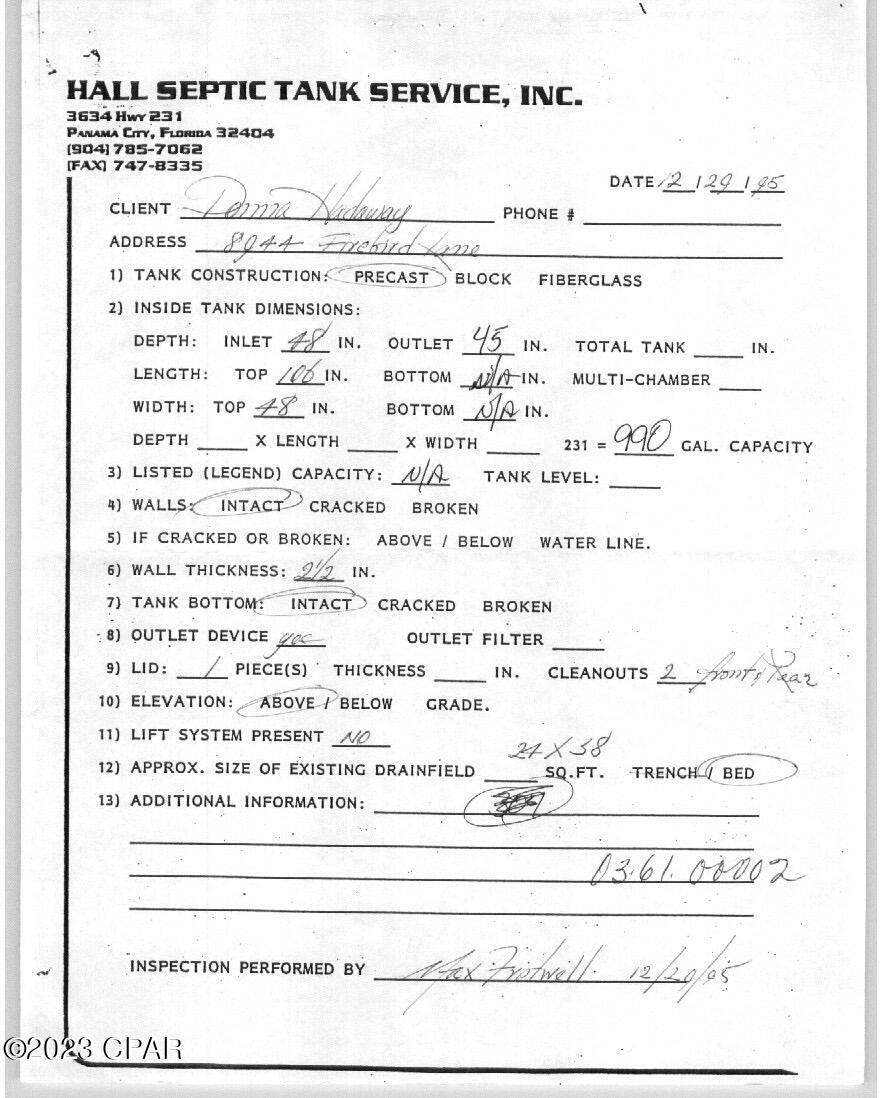 HALL SEPTIC TANK SERVICE, INC.
3634 HWY 231
PANAMA CITY, FLORIDA 32404
(904) 785-7062
(FAX) 747-8335
DATE 12 / 29 / 95
CLIENT Donna Hadaway PHONE #
ADDRESS 8944 Firebird Lane
1) TANK CONSTRUCTION: PRECAST BLOCK FIBERGLASS
2) INSIDE TANK DIMENSIONS:
DEPTH: INLET 48 IN. OUTLET 45 IN. TOTAL TANK ____ IN.
LENGTH: TOP 106 IN. BOTTOM N/A IN. MULTI-CHAMBER ____
WIDTH: TOP 48 IN. BOTTOM N/A IN.
DEPTH ____ X LENGTH ____ X WIDTH ____ 231 = 990 GAL. CAPACITY
3) LISTED (LEGEND) CAPACITY: N/A TANK LEVEL: ____
4) WALLS: INTACT CRACKED BROKEN
5) IF CRACKED OR BROKEN: ABOVE / BELOW WATER LINE.
6) WALL THICKNESS: 2 1/2 IN.
7) TANK BOTTOM: INTACT CRACKED BROKEN
8) OUTLET DEVICE yes OUTLET FILTER ____
9) LID: 1 PIECE(S) THICKNESS ____ IN. CLEANOUTS 2 front & Rear
10) ELEVATION: ABOVE / BELOW GRADE.
11) LIFT SYSTEM PRESENT NO
24 X 38
12) APPROX. SIZE OF EXISTING DRAINFIELD ____ SQ.FT. TRENCH / BED
13) ADDITIONAL INFORMATION:
03.61.00002
INSPECTION PERFORMED BY Max 12/29/95
©2023 CPAR